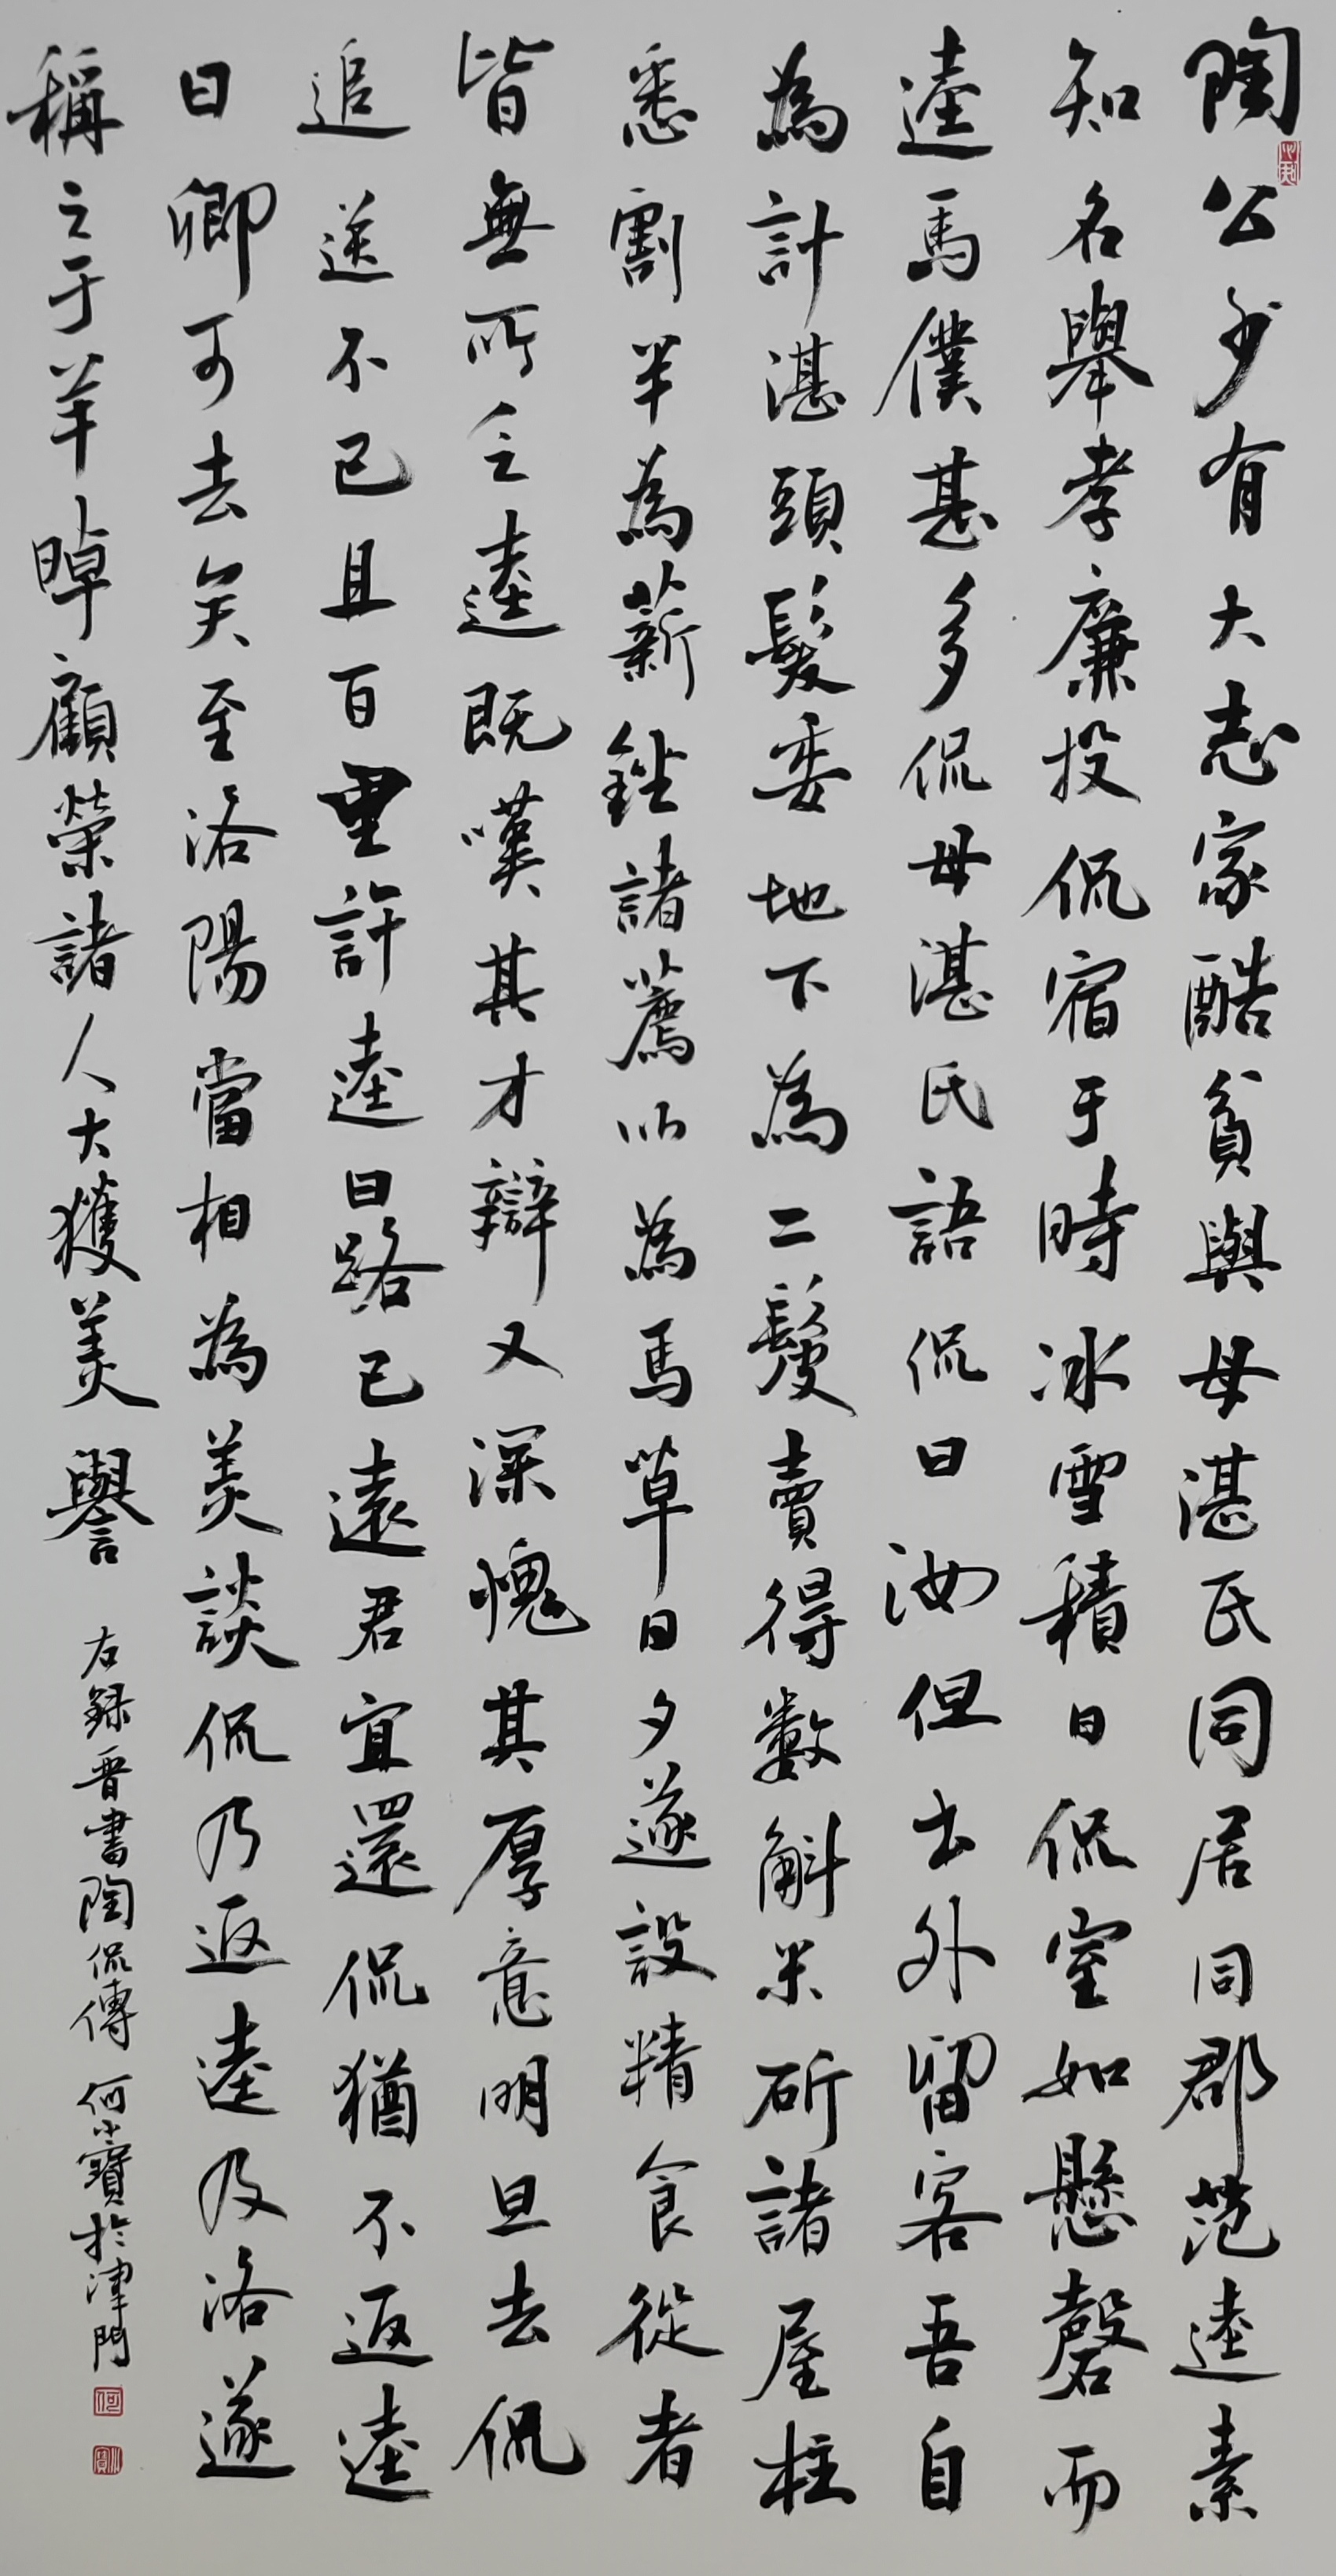 陶公少有大志家酷貧與母湛氏同居同郡范逵素
知名舉孝廉投侃宿于時冰雪積日侃室如懸磬而
逵馬僕甚多侃母湛氏語侃曰汝但出外留客吾自
為計湛頭髮委地下為二髲賣得數斛米斫諸屋柱
悉割半為薪剉諸薦以為馬草日夕遂設精食從者
皆無所乏逵既嘆其才辯又深愧其厚意明旦去侃
追送不已且百里許逵曰路已遠君宜還侃猶不返逵
曰卿可去矣至洛陽當相為美談侃乃返逵及洛遂
稱之于羊晫顧榮諸人大獲美譽
右録晋書陶侃傳 何小寶於津門